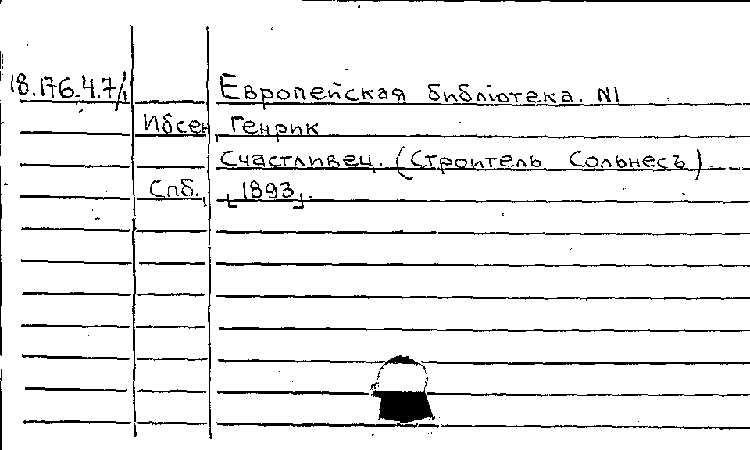 18.176.4.7/1 Европейская библiотека. N1
Ибсен, Генрик
Счастливец. (Строитель Сольнесъ).
Спб., [1893].